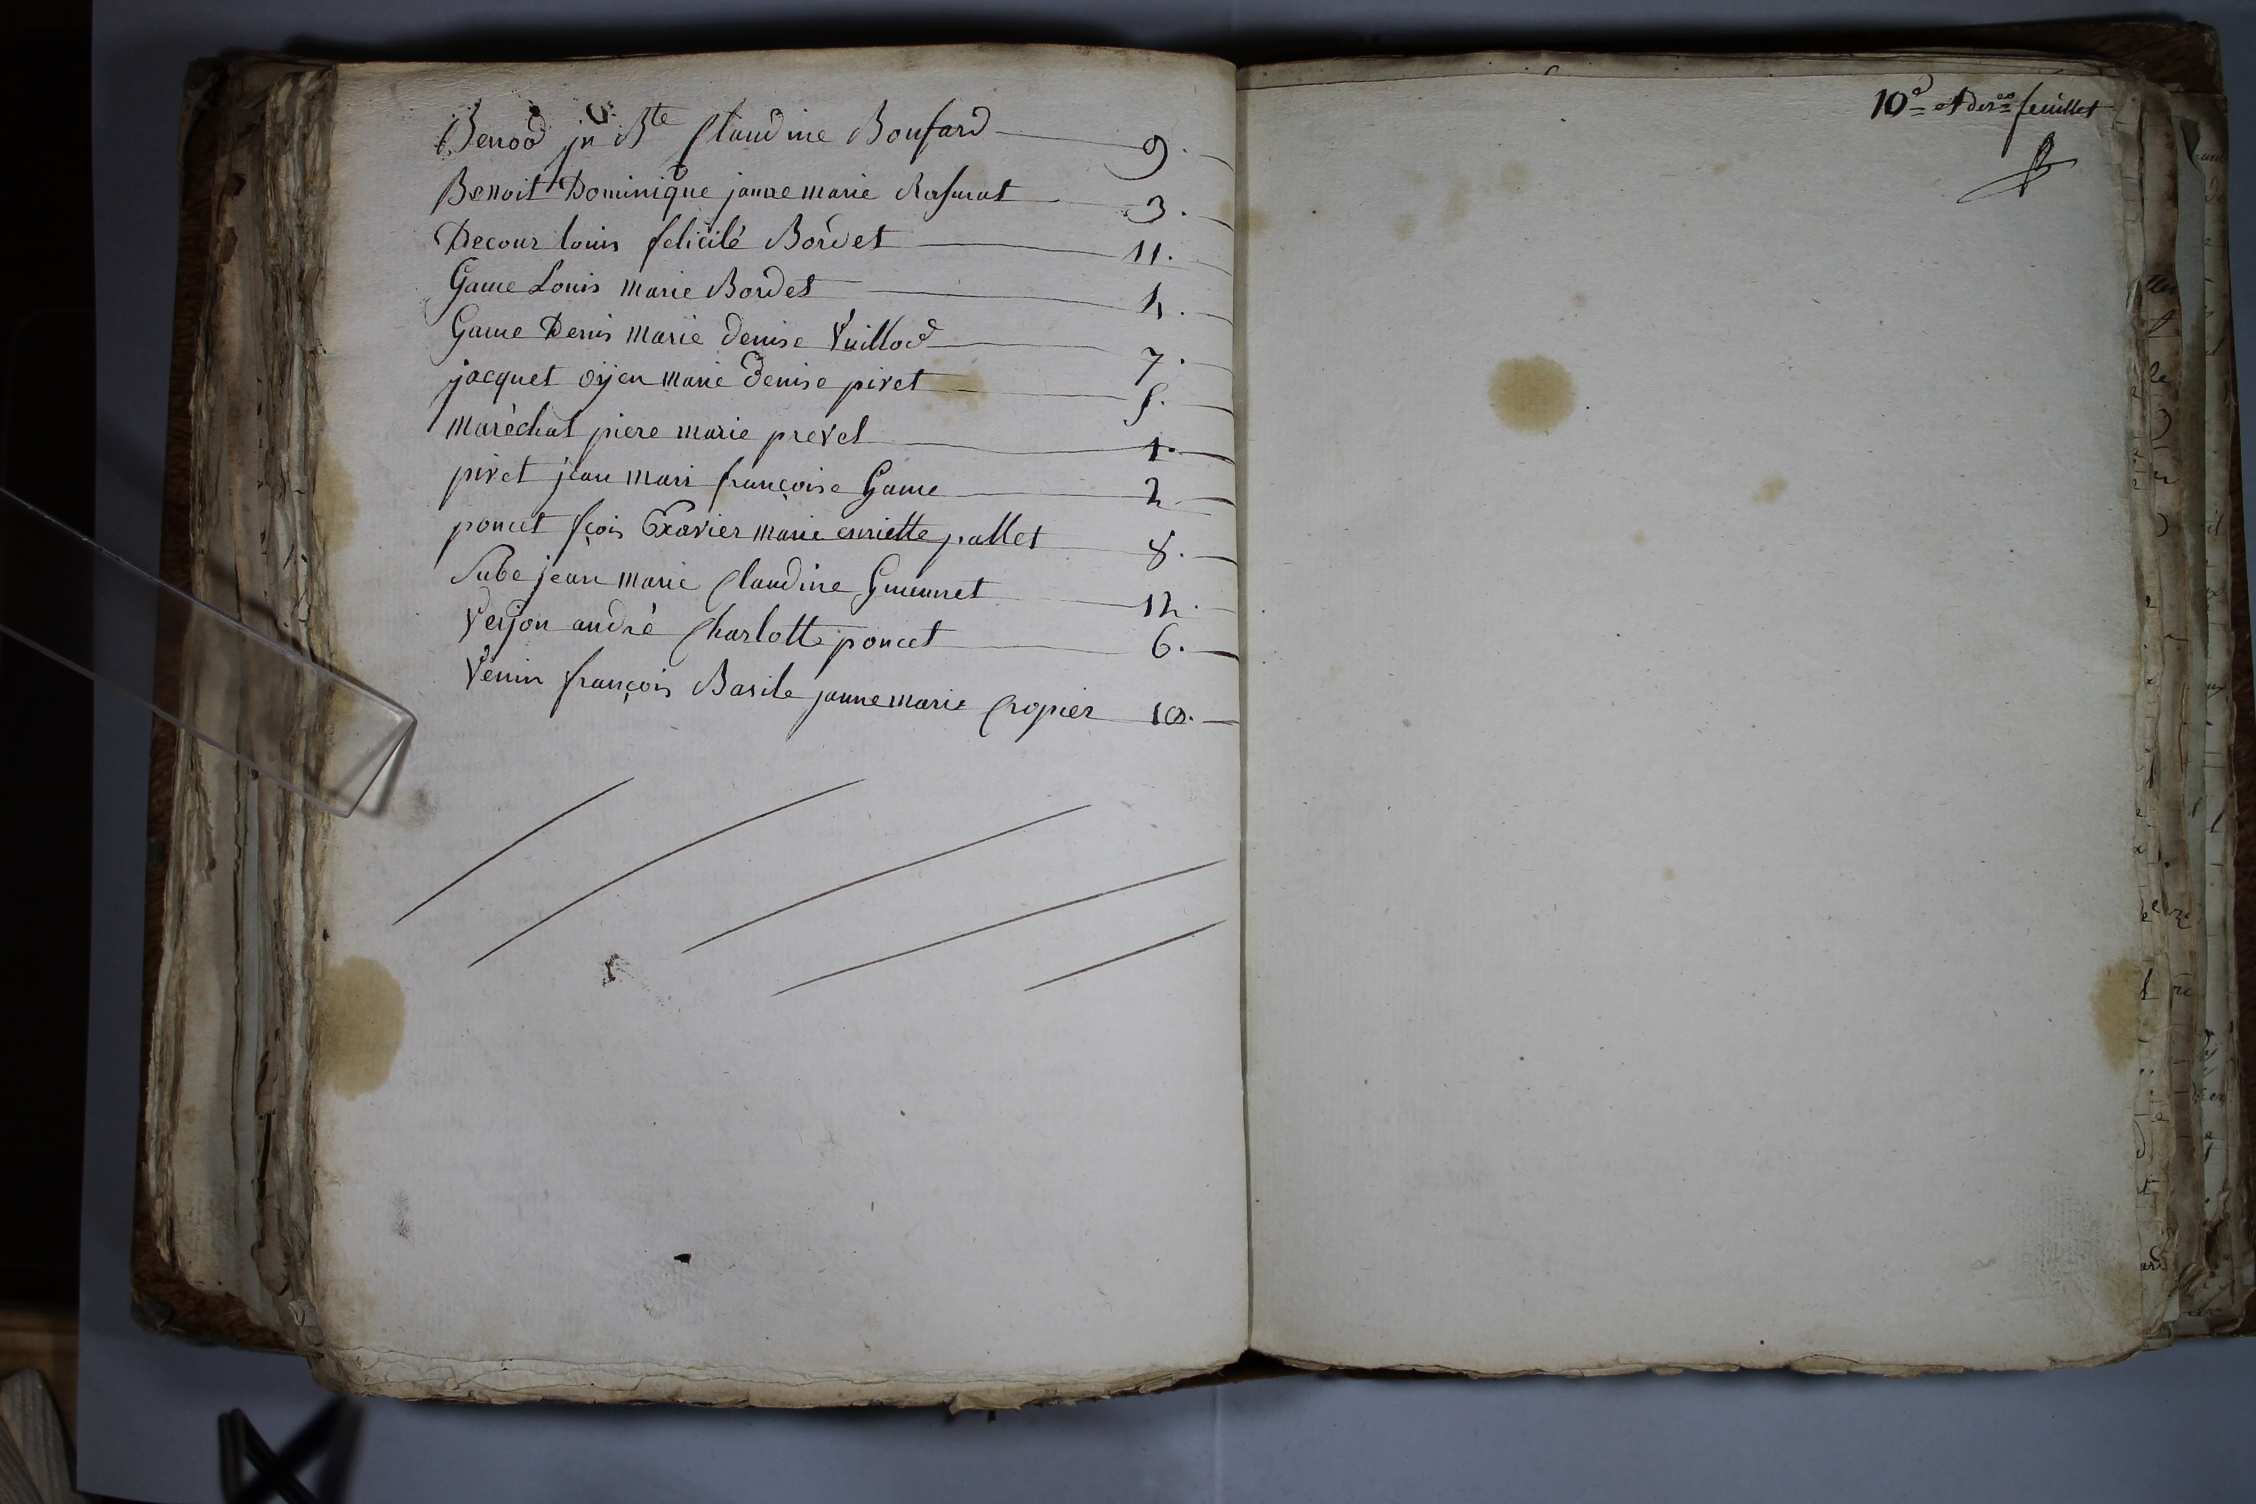 Benod jn Bte Claudine Boufard 9.
Benoit Dominique janne marie 3.
Decour louis felicité Bordet 11.
Game Louis Marie Bordet 4.
Game Denis Marie Denise Vuillod 7.
jacquet oyen Marie Denise pivet 5.
Maréchal piere Marie prevel 1.
pivet jean Mari françoise Game 2
poncet fçois Exavier Marie enriette pallet 8.
Sube jean Marie Claudine 12.
Verjon andré Charlotte poncet 6.
Venin françois Basile janne Marie Cropier 10.
10e et der feuillet